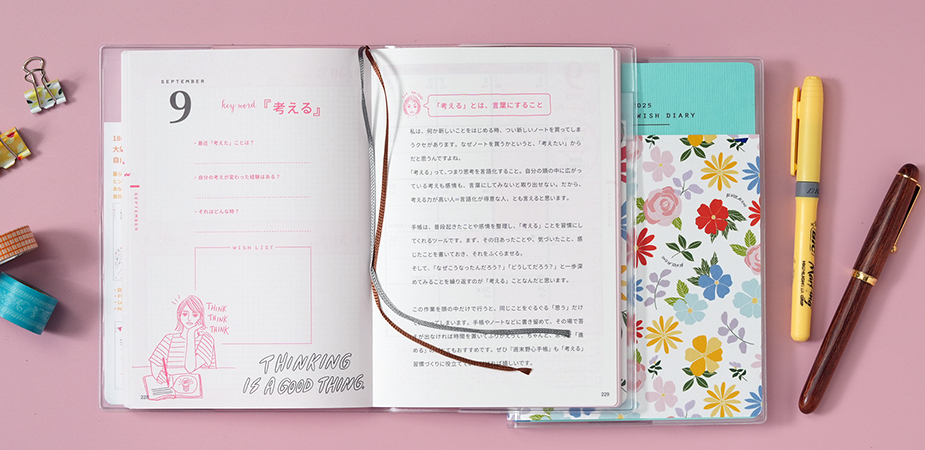 SEPTEMBER
9
key word 『考える』
・最近「考えた」ことは？
・自分の考えが変わった経験はある？
・それはどんな時？
SEPTEMBER
WISH LIST
THINK
THINK
THINK
THINKING
IS A GOOD THING.
「考える」とは、言葉にすること
私は、何か新しいことをはじめる時、つい新しいノートを買ってしま
うクセがあります。なぜノートを買うかというと、「考えたい」から
だと思うんですよね。
「考える」って、つまり思考を言語化すること。自分の頭の中に広がっ
ている考えも感情も、言葉にしてみないと取り出せない。だから、
考える力が高い人＝言語化が得意な人、とも言えると思います。
手帳は、普段起きたことや感情を整理し、「考える」ことを習慣にし
てくれるツールです。まず、その日あったことや、気づいたこと、感
じたことを書いておき、それをふくらませる。
そして、「なぜこうなったんだろう？」「どうしてだろう？」と一歩深
めてみることを繰り返すのが「考える」ことなんだと思います。
この作業を頭の中だけで行うと、同じことをぐるぐる「思う」だけ
てしまいます。手帳やノートなどに書き留めて、その場で答
が出なければ時間を置いて
める」の
てもおすすめです。ぜひ『週末野心手帳』も「考える」
習慣づくりに役立てて
嬉しいです。
229
2025
WISH DIARY